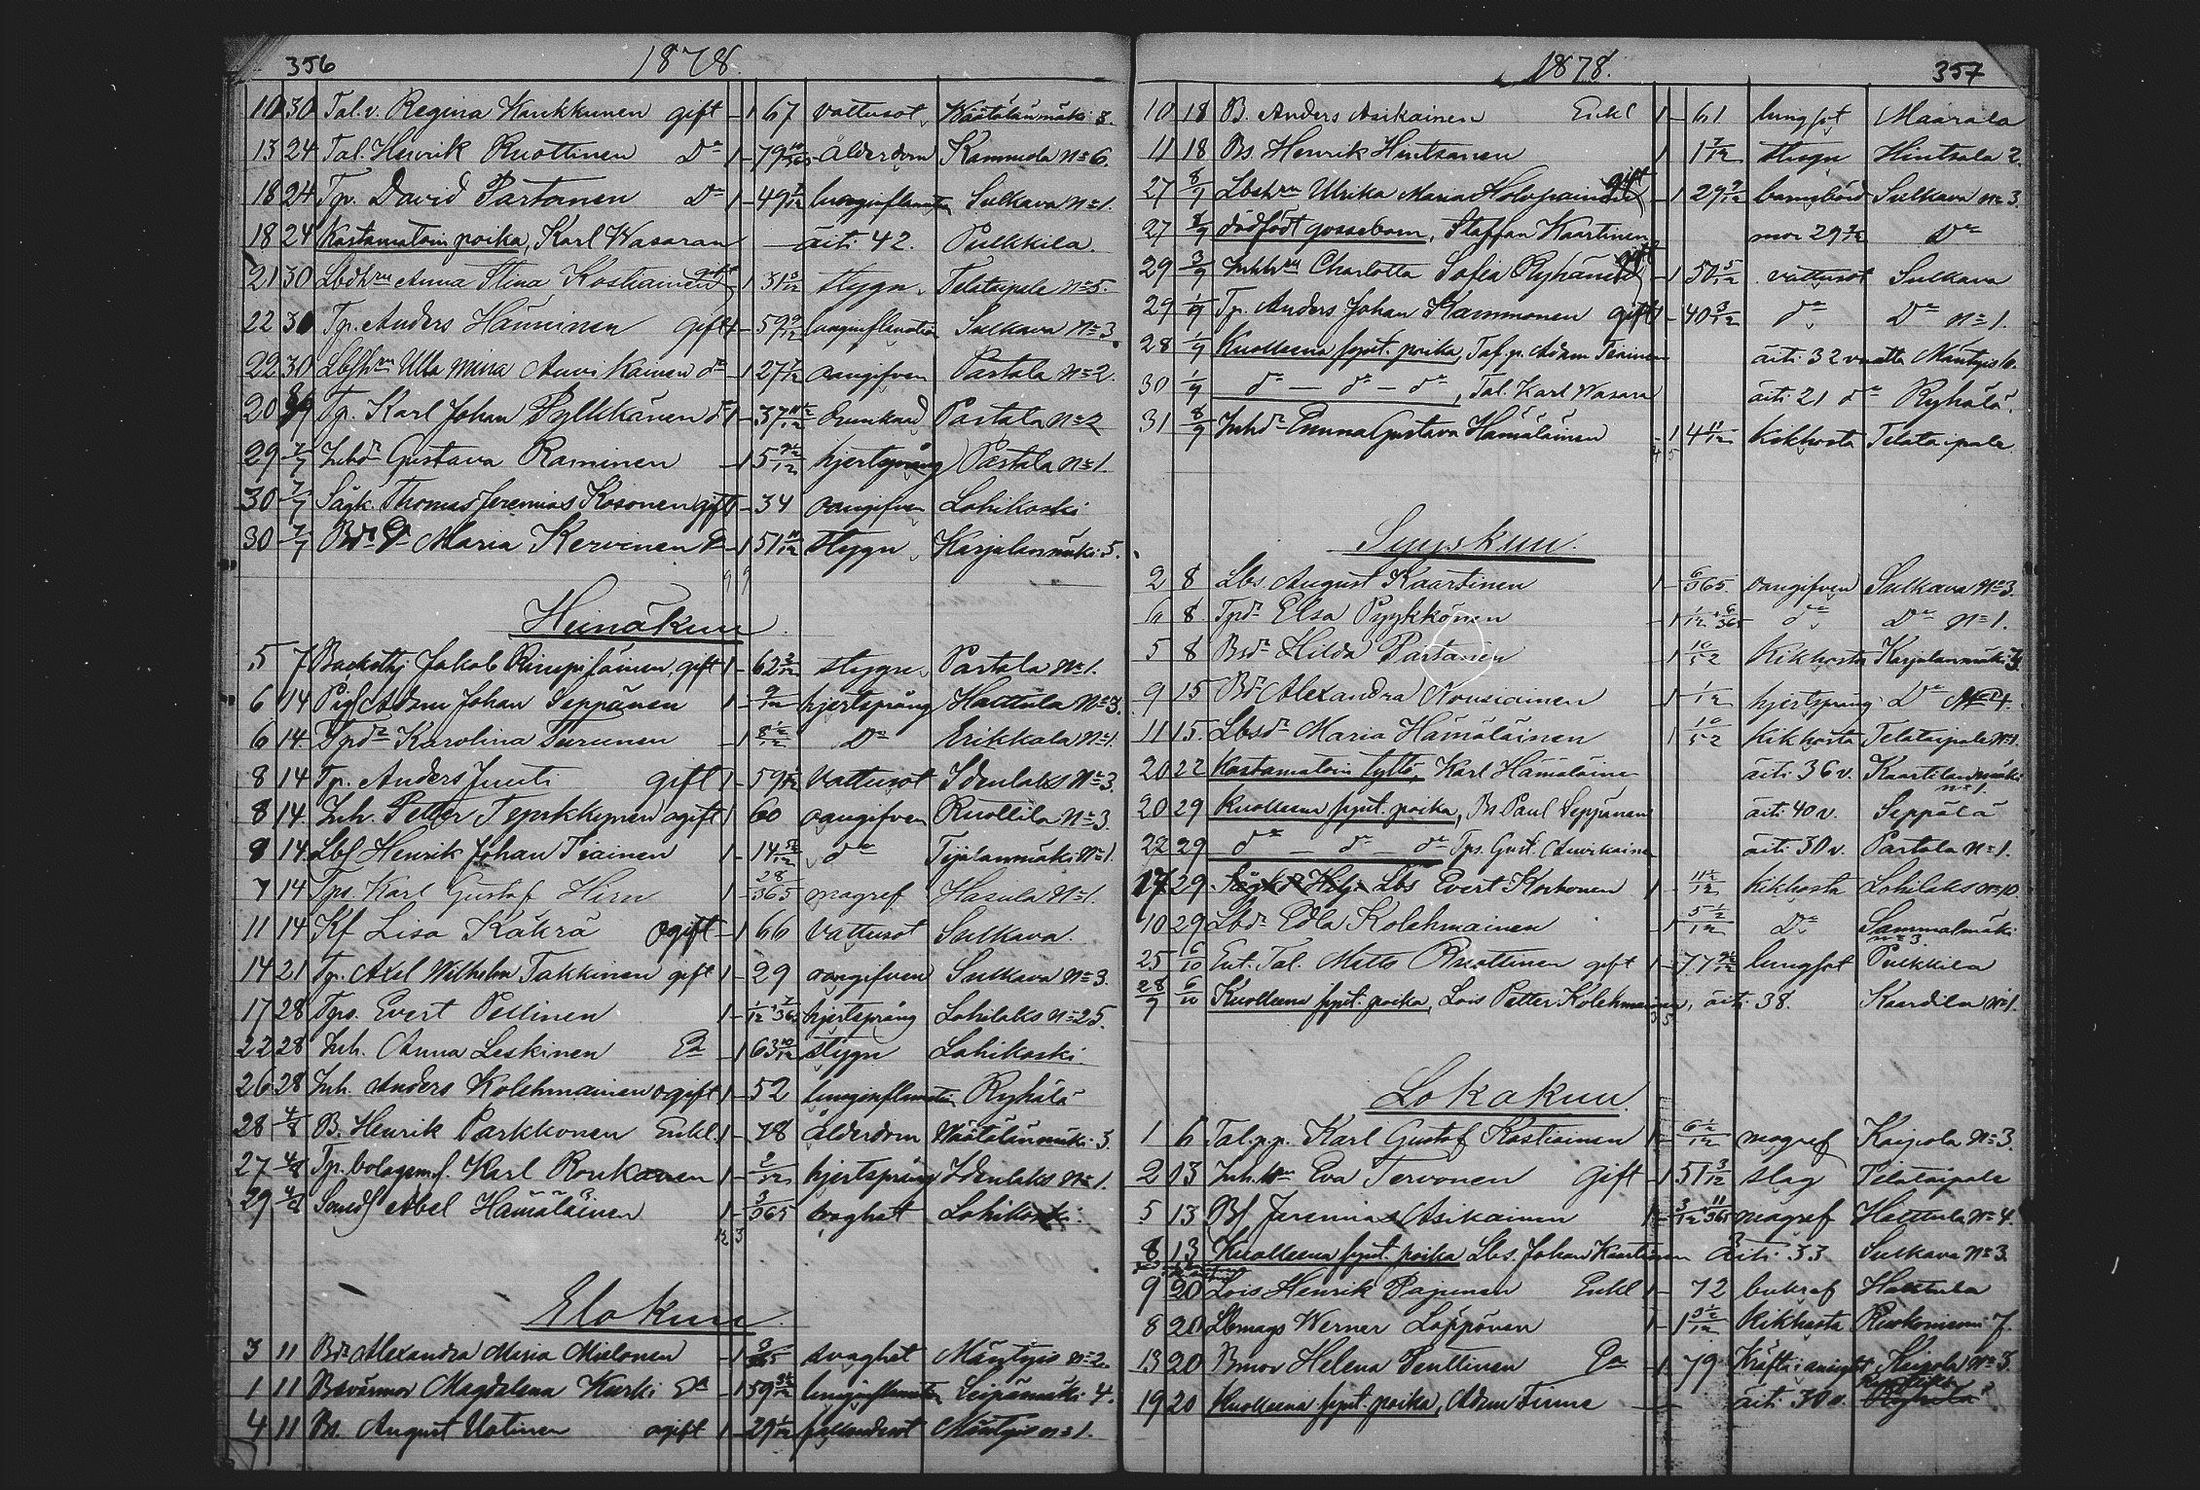 356
1878.
10 30 Tal. v. Regina Kaukkunen gift – 1 67 vattusot Väätälänmäki 8.
13 24 Tal. Henrik Ruottinen Do 1 – 79 ålderdom Kammola No 6.
18 24 Tp. David Partanen Do 1 – 49 lunginflamation Sulkava No 1.
18 24 Kastamatoin poika, Karl Wasaran äiti 42. Pulkkila.
21 30 Lbdhru Anna Stina Kostiainen gift – 1 31 stygn Telataipale No 5.
22 30 Tp. Anders Hänninen gift 1 – 59 lunginflamation Sulkava No 3.
22 30 Ulla Mina Auvikainen do – 1 27 oangifven Partala No 2.
20 Tp. Karl Johan Pylkkänen do 1 – 37 Drunknad Partala No 2
29 7/7 Inhdr Gustava Raminen – 1 5 hjertsprång Partala No 1.
30 7/7 Sågk. Thomas Jeremias Kosonen gift 1 – 34 oangifven Lohikoski
30 7/7 Maria Kervinen – 1 51 stygn Karjalanmäki 5.
9 9
Heinäkuu
5 7 Jakob gift 1 – 62 stygn Partala No 1.
6 14 Adam Johan Seppänen 1 – 9/12 hjertsprång Halttula No 3.
6 14 Tpdr Karolina Turunen – 1 8½/12 Do Erikkala No 1.
8 14 Tp. Anders Juuti gift 1 – 59 vattusot Idenlaks No 3.
8 14 Inh. Petter ogift 1 60 oangifven Ruottila No 3.
8 14 Lbs Henrik Johan Tiainen 1 – 14 do No 1.
7 14 Tps. Karl Gustaf Hirn 1 – 28/365 magref Hasula No 1.
11 14 Kf Lisa Käkrä ogift – 1 66 vattusot Sulkava.
14 21 Tp. Axel Wilhelm Takkinen gift 1 – 29 oangifven Sulkava No 3.
17 28 Tps. Evert Pellinen 1 – hjertsprång Lohilaks No 25.
22 28 Inh. Anna Leskinen Ea – 1 63 10/12 stygn Lohikoski
26 28 Inh. Anders Kolehmainen ogift 1 – 52 lunginflamation Ryhälä
28 4/8 B. Henrik Parkkonen Enkl. 1 – 78 ålderdom Väätälänmäki 3.
27 4/8 Tp. bolagsm. s. Karl Roukanen 1 – 2/12 hjertsprång Idenlaks No 1.
29 4/8 Abel Hämäläinen 1 – 3/365 svaghet Lohikoski
12 3
Elokuu
3 11 Bdr Alexandra Maria Mielonen – 1 svaghet Mäntynis No 2.
1 11 Magdalena Kurki Ea – 1 59 lunginflamation Leipämäki 4.
4 11 Bs. August Uotinen ogift 1 – 29 1/12 fallandesot Mäntynis No 1.
1878.
357
10 18 B. Anders Asikainen Enkl 1 – 61 lungsot Maarala
11 18 Bs. Henrik Hintsanen 1 1 7/12 stygn Hintsala 2.
27 8/9 Lbshru Ulrika Maria Holopainen gift – 1 29 barnsbörd Sulkava No 3.
27 8/9 dödfödt gossebarn, Staffan Kaartinen mor 29 Do
29 Inhhru Charlotta Sofia Ryhänen gift – 1 50 5/12 vattusot Sulkava
29 1/9 Tp. Anders Johan Kammonen gift 1 – 40 3/12 do Do No 1.
28 1/9 Kuolleena synt. poika, Tal. p. Adam Tiainen äiti 32 vuotta Mäntynis 6.
30 1/9 do – do – do, Tal. Karl Wasara äiti 21 do Ryhälä.
31 8/9 Inhdr Emma Gustava Hämäläinen – 1 4 11/12 kikhosta Telataipale
4 5
Syyskuu.
2 8 Lbs August Kaartinen 1 – 6/365. oangifven Sulkava No 3.
6 8 Tpdr Elsa Pyykkönen – 1 do Do No 1.
5 8 Bsdr Hilda Partanen – 1 10/52 kikhosta Karjalanmäki
9 15 Bdr Alexandra Nousiainen – 1 1/12 hjertsprång Do
11 15. Lbsdr Maria Hämäläinen 1 10/52 kikhosta Telataipale No 1.
20 22 Kastamatoin tyttö, Karl Hämäläinen äiti 36 v. Kaartilanmäki No 1.
20 29 Kuolleena synt. poika, Bs Paul Seppänen äiti 40 v. Seppälä
22 29 do – do – do Tps. Gust. Auvikainen äiti 30 v. Partala No 1.
17 29 Lbs Evert Korhonen 1 – 11½/12 kikhosta Lohilaks No 10.
10 29 Lbdr Edla Kolehmainen – 1 5½/12 Do Sammalmäki No 3.
25 6/10 Ent. Tal. Matts Ruottinen gift 1 – 77 lungsot Pulkkila
28/9 6/10 Kuolleena synt. poika, Lois Petter Kolehmainen, äiti 38. Kaardila No 1.
3 5
Lokakuu.
1 6 Tal. p. p. Karl Gustaf Kostiainen 1 – 6½/12 magref Kaipola No 3.
2 13 Inh. hru Eva Tervonen Gift – 1 51 3/12 slag Telataipale
5 13 Bs Jeremias Asikainen 1 – 3/12 11/365 magref Halttula No 4.
8 13 Kuolleena synt. poika Lbs. Johan Kaartinen äiti 33 Sulkava No 3.
9 20 Lois Henrik Pajunen Enkl 1 – 72 bukref Halttula
8 20 Werner Löppönen 1 – 1 kikhosta Ruokoniemi 7.
13 20 Bmor Helena Penttinen Ea – 1 79 Kräfta i ansigtet Kaipola No 3.
19 20 Kuolleena synt. poika, Adam Tiime – äiti 30 v.